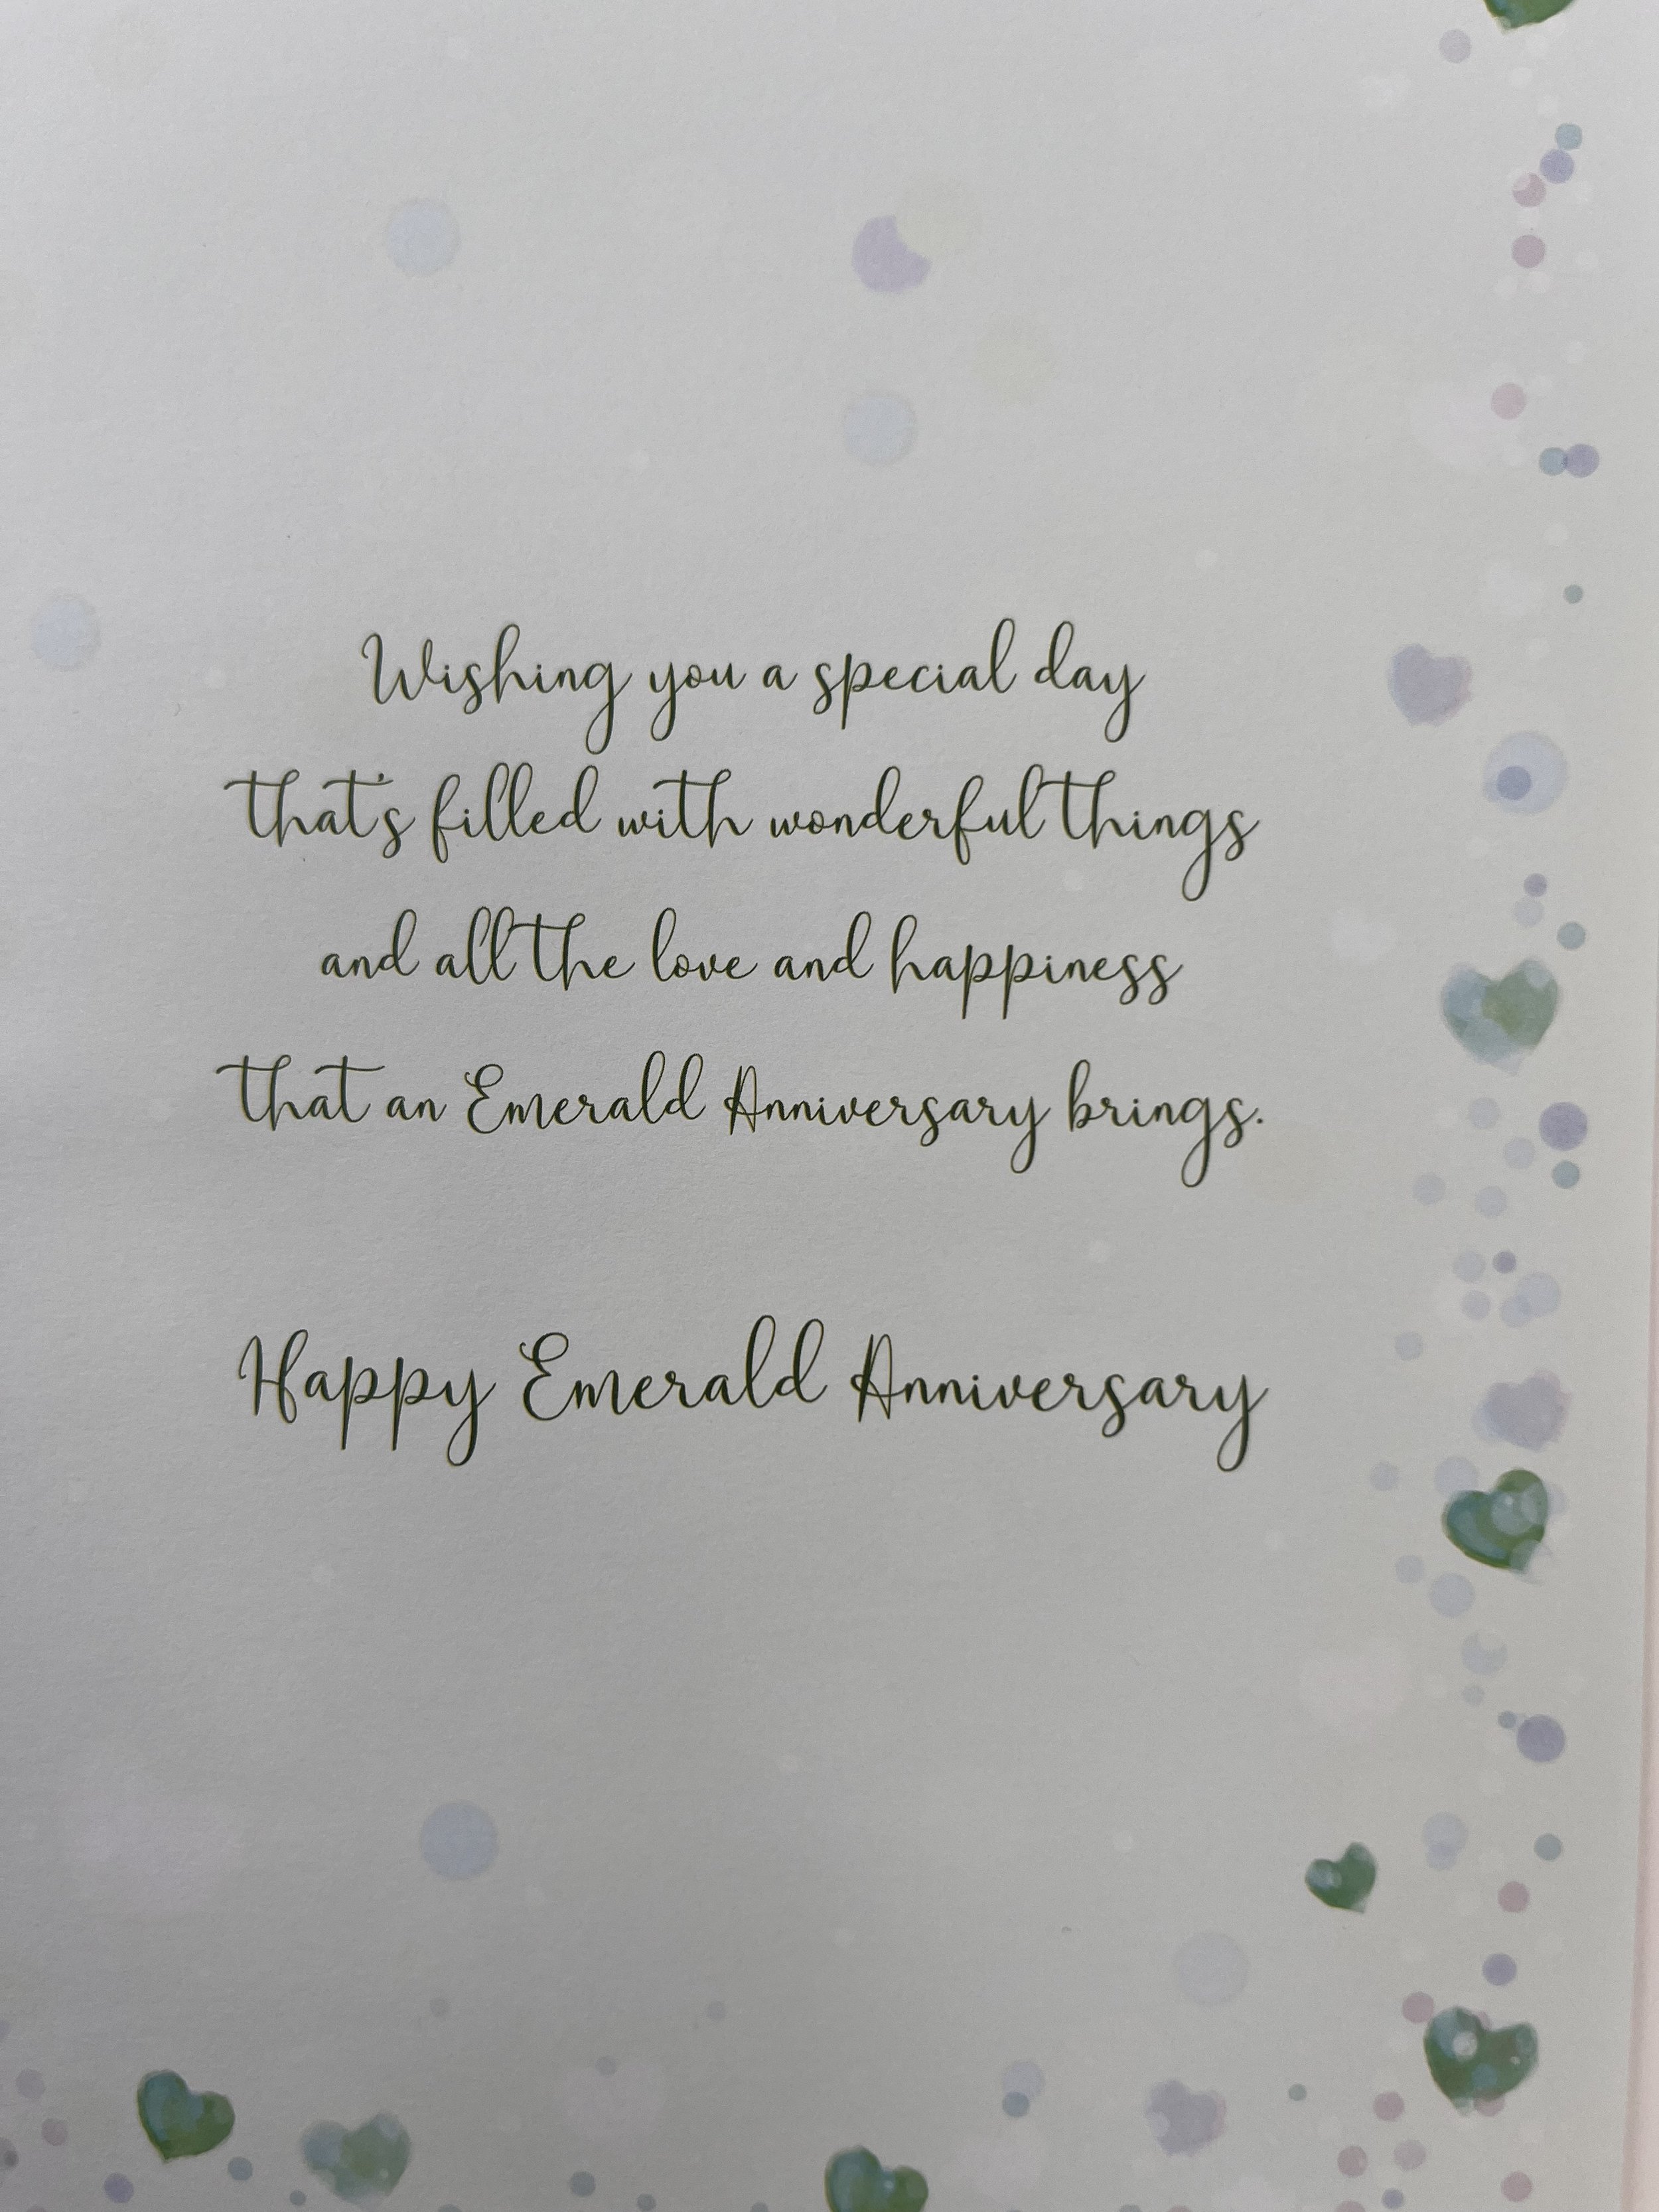 Wishing you a special day
that's filled with wonderful things
and all the love and happiness
that an Emerald Anniversary brings.
Happy Emerald Anniversary